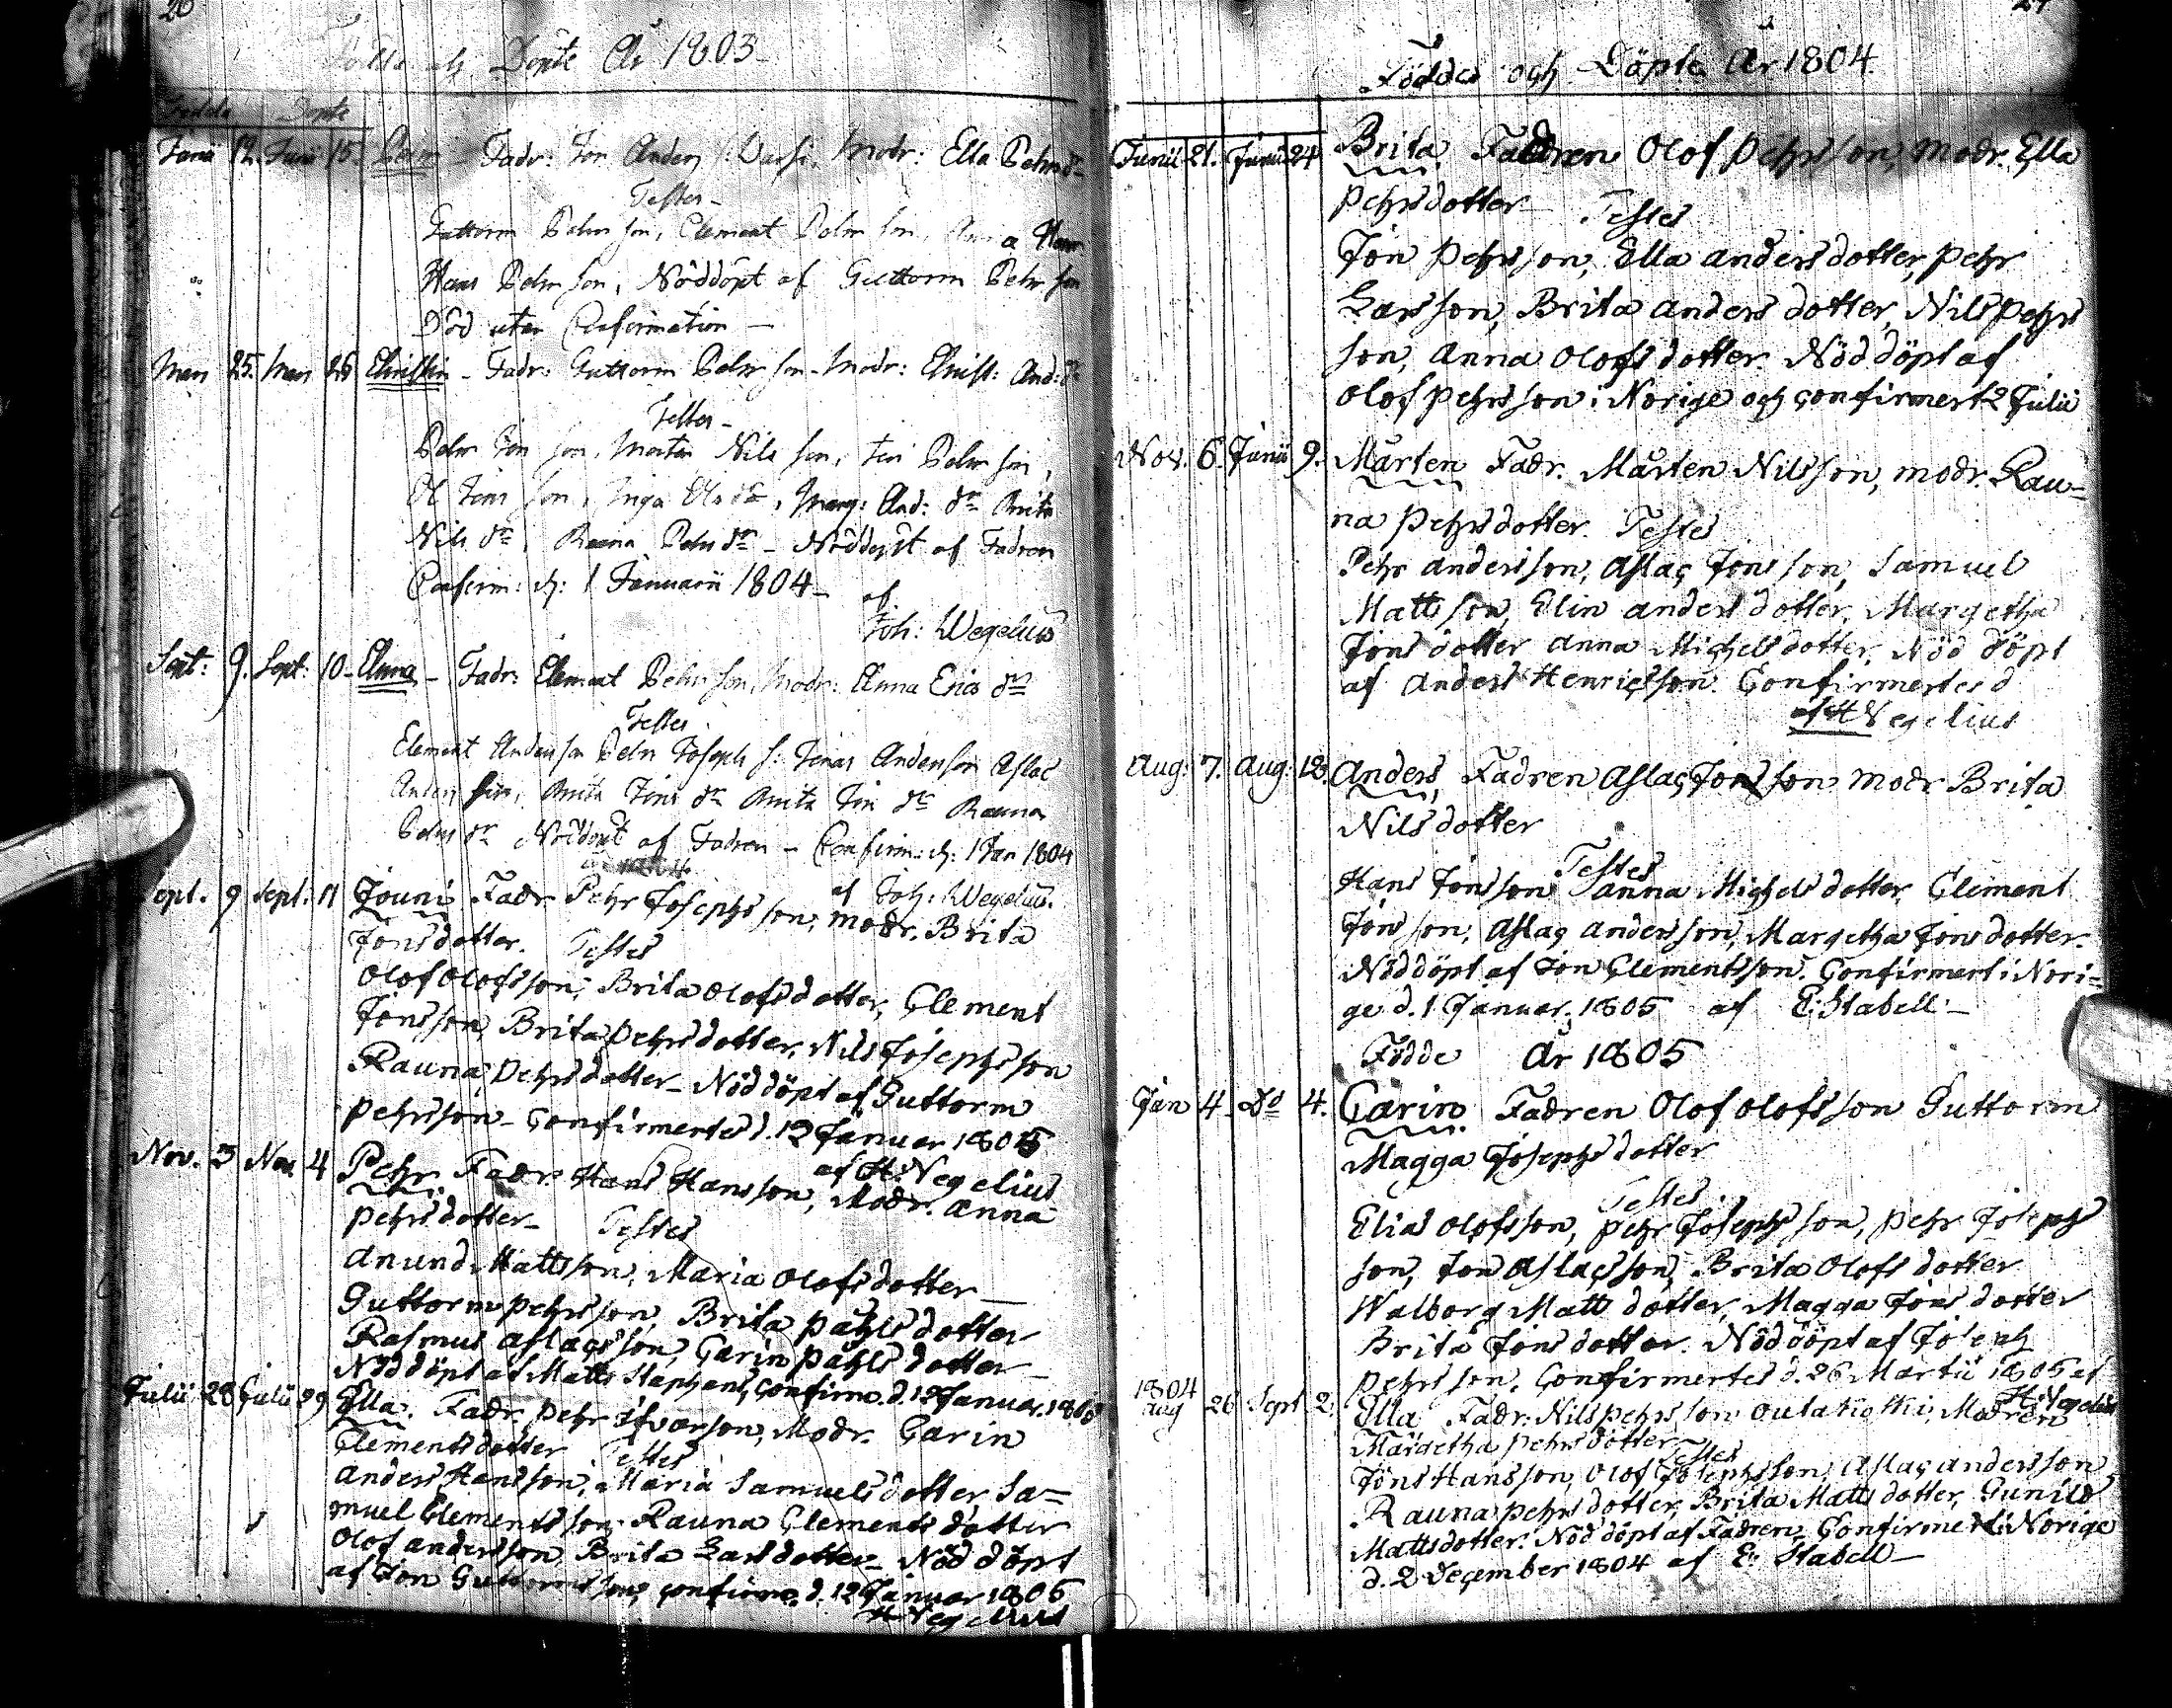 20
Födde och Döpte År 1803
Fördda Döpte
Junii 12. Junii 15. Fadr: Jon Anders s: Modr: Ella Pehrsdr
Testes
Guttorm Pehr son, Clement Pehr son, Anna Hans
Hans Pehr son, Nöddöpt af Guttorm Pehr son
Död utan Confirmation
25. 26 Christin - Fadr: Guttorm Pehr son - Modr: Christ: And: dr
Testes
Pehr Jon son, Morten Nils son, Jon Pehr son,
Ol Jons son, Inga Ols dr, Marg: And: dr Brita
Nils dr, Rauna Pehrs dr - Nöddöpt af Fadren
Confirm: d: 1 Januarii 1804 - af
Joh: Wegelius
Sept: 9. Sept: 10 - Anna - Fadr: Clement Pehr son, Modr: Anna Erics dr
Testes
Clement Anderson Pehr Joseph s: Jonas Anderson Aslac
Anders son, Brita Jons dr Brita Jon dr Rauna
Pehrs dr Nöddöpt af Fadren - Confirm: d: 1 Jan 1804
af Joh: Wegelius.
Sept. 9 Sept: 11 Jouni Fadr Pehr Josephsson, modr. Brita
Jonsdotter. Testes
Olof Olofsson, Brita Olofsdotter, Clement
Jonsson, Brita Pehrsdotter, Nils Josephsson
Rauna Pehrsdotter - Nöddöpt af Guttorm
Pehrsson - Confirmertes d. 12 Januar 1805
af H. Wegelius
Nov. 3 Nov. 4 Pehr. Fadr. Hans Hansson, Modr. Anna
Pehrsdotter - Testes
Anund Mattsson, Maria Olofsdotter -
Guttorm Pehrsson, Brita Påhlsdotter
Rasmus Aslacsson, Carin Påhls dotter -
Nöddöpt af Matts Staphans, Confirm. d. 12 Januar. 1805
Julii 28 Julii 29 Ella. Fadr. Pehr Ifvarson, Modr. Carin
Clementsdotter Testes
Anders Hansson, Maria Samuelsdotter, Sa-
muel Clementsson, Rauna Clements dotter
Olof Andersson, Brita Larsdotter - Nöd döpt
af Jon Guttormsson, Confirm. d. 12 Januar 1805
H Wegelius
21
Föddes och Döpte År 1804.
Junii 21. Junii 24 Brita. Fadren Olof Pehrsson, modr. Ella
Pehrsdotter - Testes
Jon Pehrsson, Ella Andersdotter, Pehr
Larsson, Brita Anders dotter, Nils Pehrs
son, Anna Olofsdotter. Nöddöpt af
Olof Pehrsson i Norige och Confirmert 2 Julii
Nov. 6. Junii 9. Mårten Fadr. Mårten Nilsson, modr. Rau-
na Pehrsdotter. Testes
Pehr Andersson, Aslac Jonsson, Samuel
Mattsson, Elin Anders dotter, Margetha
Jonsdotter Anna Michelsdotter, Nöd döpt
af Anders Henricsson. Confirmertes d
af H Wegelius
Aug: 7. Aug: 12. Anders, Fadren Aslac Jonsson modr Brita
Nilsdotter
Testes
Hans Jonsson Anna Michelsdotter, Clement
Jonsson, Aslac Andersson, Margetha Jonsdotter.
Nöddöpt af Jon Clementsson. Confirmert i Nori-
ge d. 1 Januar. 1805 af E: Stabell -
Födde År 1805
Jan 4. Do 4. Carin Fadren Olof Olofsson Guttorm
Magga Josephsdotter
Testes
Elias Olofsson, Pehr Josephsson, Pehr Joseph
son, Jon Aslacsson, Brita Olofs dotter
Walborg Matts dotter, Magga Jons dotter
Brita Jonsdotter. Nöddöpt af Joseph
Pehrsson. Confirmertes d. 26 Martii 1805 af
H: Wegelius
1804
Aug 26 Sept 2. Ella Fadr: Nils Pehrsson Modren
Margetha Pehrsdotter - Testes
Jons Hansson, Olof Josephsson, Aslac Andersson,
Rauna Pehrsdotter, Brita Mattsdotter, Gunild
Mattsdotter. Nöddöpt af Fadren. Confirmert i Norige
d. 2 December 1804 af E: Stabell -